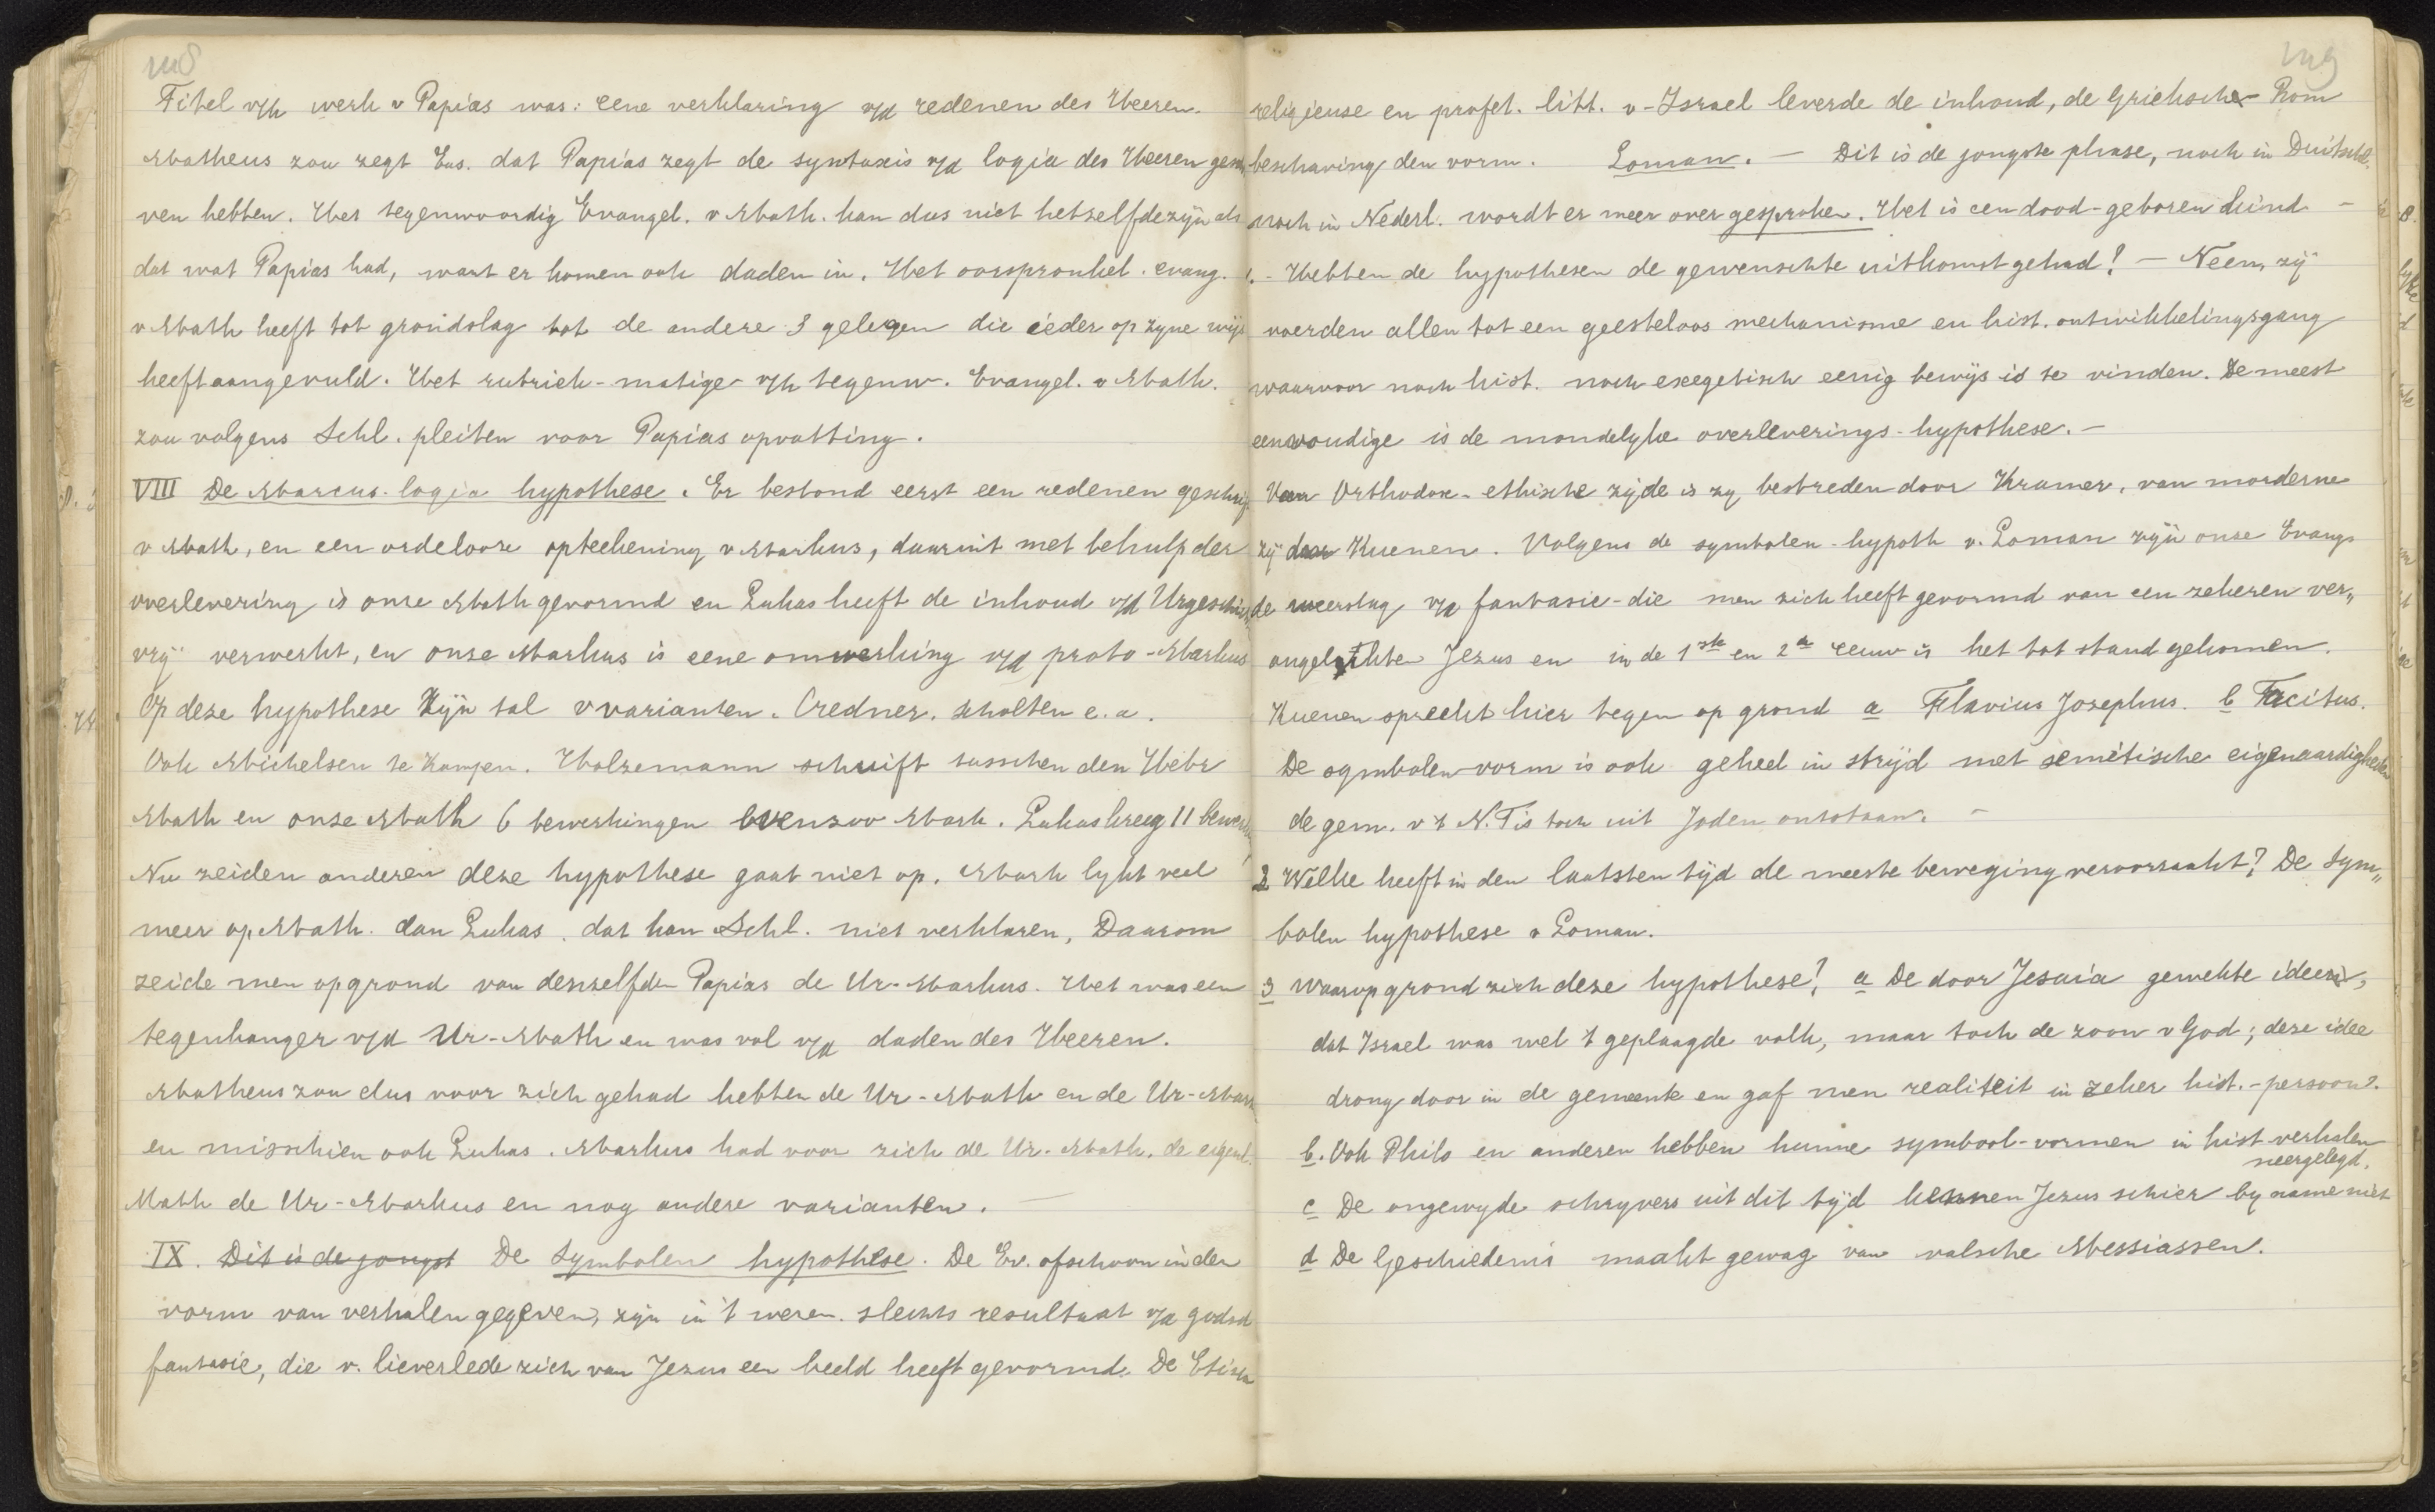 118
Titel v/h werk v Papias was: eene verklaring v/d redenen des Heeren.
Matheus zou zegt Eus. dat Papias zegt de syntaxis v/d logia des Heeren geschre
ven hebben. Het tegenwoordig Evangel. v Math. kan dus niet hetzelfde zijn als
dat wat Papias had, want er komen ook daden in. Het oorspronkel. evang.
v Math heeft tot grondslag tot de andere 3 gelegen die ieder op zyne wijs
heeft aangevuld. Het rubriek-matige v/h tegenw. Evangel. v Math.
zou volgens Schl. pleiten voor Papias opvatting.
VIII De Marcus-logia hypothese. Er bestond eerst een redenen geschrift
v Math, en een ordeloose opteekening v Markus, daaruit met behulp der
overlevering is onze Math gevormd en Lukas heeft de inhoud v/d Urgeschied.
vrij verwerkt, en onze Markus is eene omwerking v/d proto-Markus
Op deze hypothese zijn tal v varianten. Credner, Scholten e.a.
Ook Michelsen te Kampen. Holzemann schuift tusschen den Hebr
Math en onze Math 6 bewerkingen evenzoo Mark. Lukas kreeg 11 bewerk
Nu zeiden anderen deze hypothese gaat niet op. Mark lykt veel
meer op Math. dan Lukas, dat kan Schl. niet verklaren, Daarom
zeide men op grond van denzelfden Papias de Ur-Markus. Het was een
tegenhanger v/d Ur-Math en was vol v/d daden des Heeren.
Matheus zou dus voor zich gehad hebben de Ur-Math en de Ur-Mark
en misschien ook Lukas. Markus had voor zich de Ur-Math, de eigenl.
Math de Ur-Markus en nog andere varianten. —
IX. Dit is de jongst De Symbolen hypothese. De Ev. ofschoon in den
vorm van verhalen gegeven, zijn in 't wezen slechts resultaat v/d godsd
fantasie, die v. lieverlede zich van Jezus een beeld heeft gevormd. De Ethisch
119
religieuse en profet. litt. v-Israel leverde de inhoud, de Grieksche-Rom
beschaving den vorm. Loman. — Dit is de jongste phase, noch in Duitschl.
noch in Nederl. wordt er meer over gesproken. Het is een dood-geboren kind —
1. - Hebben de hypothesen de gewenschte uitkomst gehad? — Neen, zij
voerden allen tot een geesteloos mechanisme en hist. ontwikkelingsgang
waarvoor noch hist. noch exegetisch eenig bewijs is te vinden. De meest
eenvoudige is de mondelyke overleverings-hypothese. —
Van Orthodox-ethische zijde is zy bestreden door Kramer, van moderne
zij door Kuenen. Volgens de symbolen-hypoth v. Loman zijn onze Evang.
de neerslag v/d fantasie-die men zich heeft gevormd van een zekeren ver„
ongelukten Jezus en in de 1ste en 2de eeuw is het tot stand gekomen.
Kuenen spreekt hier tegen op grond a Flavius Josephus. b Tacitus.
De symbolen-vorm is ook geheel in strijd met semitische eigenaardigheden
de gem. v 't N.T is toch uit Joden ontstaan. —
2 Welke heeft in den laatsten tijd de meeste beweging veroorzaakt? De Sym„
bolen hypothese v Loman.
3 Waarop grond zich deze hypothese? a De door Jesaia gewekte ideeën,
dat Israel was wel 't geplaagde volk, maar toch de zoon v God; deze idee
drong door in de gemeente en gaf men realiteit in zeker hist.-persoon.
b. Ook Philo en anderen hebben hunne symbool-vormen in hist verhalen
neergelegd.
c De ongewyde schryvers uit dit tijd kennen Jezus schier by name niet
d De Geschiedenis maakt gewag van valsche Messiassen.